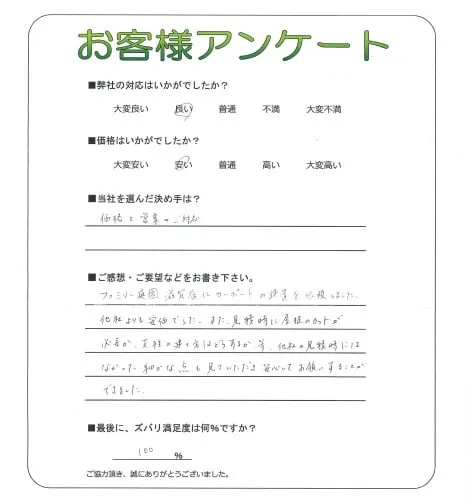 お客様アンケート
■弊社の対応はいかがでしたか？
大変良い 良い 普通 不満 大変不満
■価格はいかがでしたか？
大変安い 安い 普通 高い 大変高い
■当社を選んだ決め手は？
価格と営業の対応
■ご感想・ご要望などをお書き下さい。
ファミリー庭園 滋賀店にカーポートの設置を依頼しました。
他社よりも安価でした。また、見積時に屋根のカットが
必要か、支柱の建て方はどうするか等、他社の見積時には
なかった細かな点も見ていただき安心してお願いすることが
できました。
■最後に、ズバリ満足度は何％ですか？
100 ％
ご協力頂き、誠にありがとうございました。